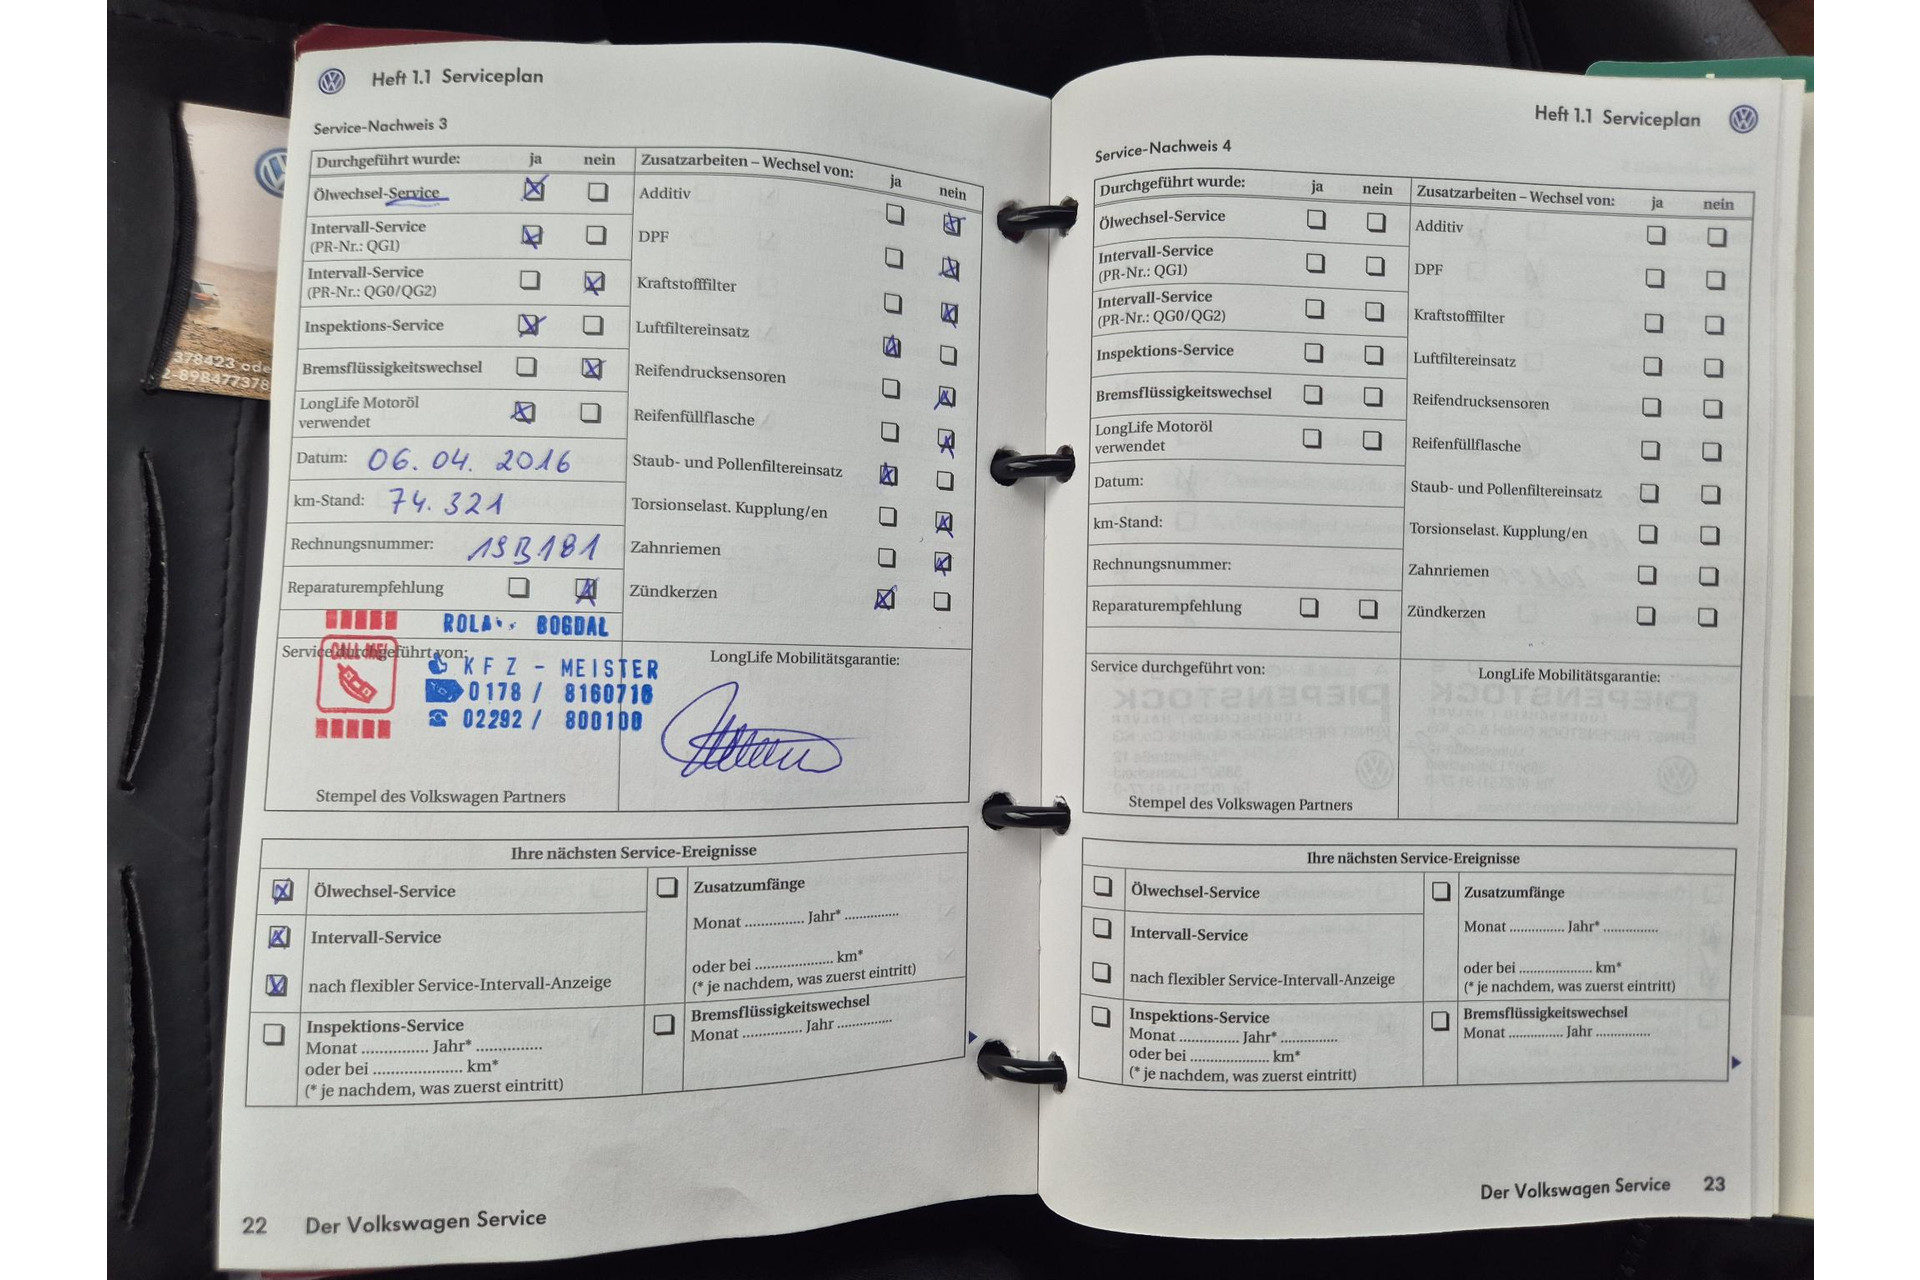 Heft 1.1 Serviceplan
Service-Nachweis 3
Durchgeführt wurde: ja nein
Ölwechsel-Service
Intervall-Service
(PR-Nr.: QG1)
Intervall-Service
(PR-Nr.: QG0/QG2)
Inspektions-Service
Bremsflüssigkeitswechsel
LongLife Motoröl
verwendet
Datum: 06. 04. 2016
km-Stand: 74. 321
Rechnungsnummer: 19B181
Reparaturempfehlung
Zusatzarbeiten – Wechsel von: ja nein
Additiv
DPF
Kraftstofffilter
Luftfiltereinsatz
Reifendrucksensoren
Reifenfüllflasche
Staub- und Pollenfiltereinsatz
Torsionselast. Kupplung/en
Zahnriemen
Zündkerzen
BOGDAL
Service durchgeführt von:
CALL ME!
KFZ - MEISTER
0178 / 8160716
02292 / 800100
Stempel des Volkswagen Partners
LongLife Mobilitätsgarantie:
Ihre nächsten Service-Ereignisse
Ölwechsel-Service
Intervall-Service
nach flexibler Service-Intervall-Anzeige
Inspektions-Service
Monat .............. Jahr* ..............
oder bei ................... km*
(* je nachdem, was zuerst eintritt)
Zusatzumfänge
Monat ............. Jahr* ............
oder bei ................. km*
(* je nachdem, was zuerst eintritt)
Bremsflüssigkeitswechsel
Monat ............. Jahr ............
22 Der Volkswagen Service
Heft 1.1 Serviceplan
Service-Nachweis 4
Durchgeführt wurde: ja nein
Ölwechsel-Service
Intervall-Service
(PR-Nr.: QG1)
Intervall-Service
(PR-Nr.: QG0/QG2)
Inspektions-Service
Bremsflüssigkeitswechsel
LongLife Motoröl
verwendet
Datum:
km-Stand:
Rechnungsnummer:
Reparaturempfehlung
Zusatzarbeiten – Wechsel von: ja nein
Additiv
DPF
Kraftstofffilter
Luftfiltereinsatz
Reifendrucksensoren
Reifenfüllflasche
Staub- und Pollenfiltereinsatz
Torsionselast. Kupplung/en
Zahnriemen
Zündkerzen
Service durchgeführt von:
Stempel des Volkswagen Partners
LongLife Mobilitätsgarantie:
Ihre nächsten Service-Ereignisse
Ölwechsel-Service
Intervall-Service
nach flexibler Service-Intervall-Anzeige
Inspektions-Service
Monat ............. Jahr* .............
oder bei ................... km*
(* je nachdem, was zuerst eintritt)
Zusatzumfänge
Monat ............. Jahr* .............
oder bei ................. km*
(* je nachdem, was zuerst eintritt)
Bremsflüssigkeitswechsel
Monat ............. Jahr .............
Der Volkswagen Service 23
378423 ode
2-898477378